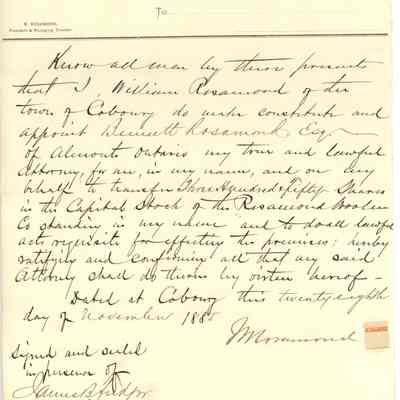 To
B. ROSAMOND,
President & Managing Director
Know all men by these presents
that I, William Rosamond of the
town of Cobourg do make constitute and
appoint Bennett Rosamond Esqr
of Almonte Ontario my true and lawful
Attorney, for me, in my name, and on my
behalf to transfer Three Hundred & fifty Shares
in the Capital Stock of the Rosamond Woolen
Co standing in my name and to do all lawful
acts requisite for effecting the premises; hereby
ratifying and confirming all that my said
Attorney shall do therein by virtue hereof -
Dated at Cobourg this twentyeighth
day of November 188
Wm Rosamond
Signed and sealed
in presence of
James B.